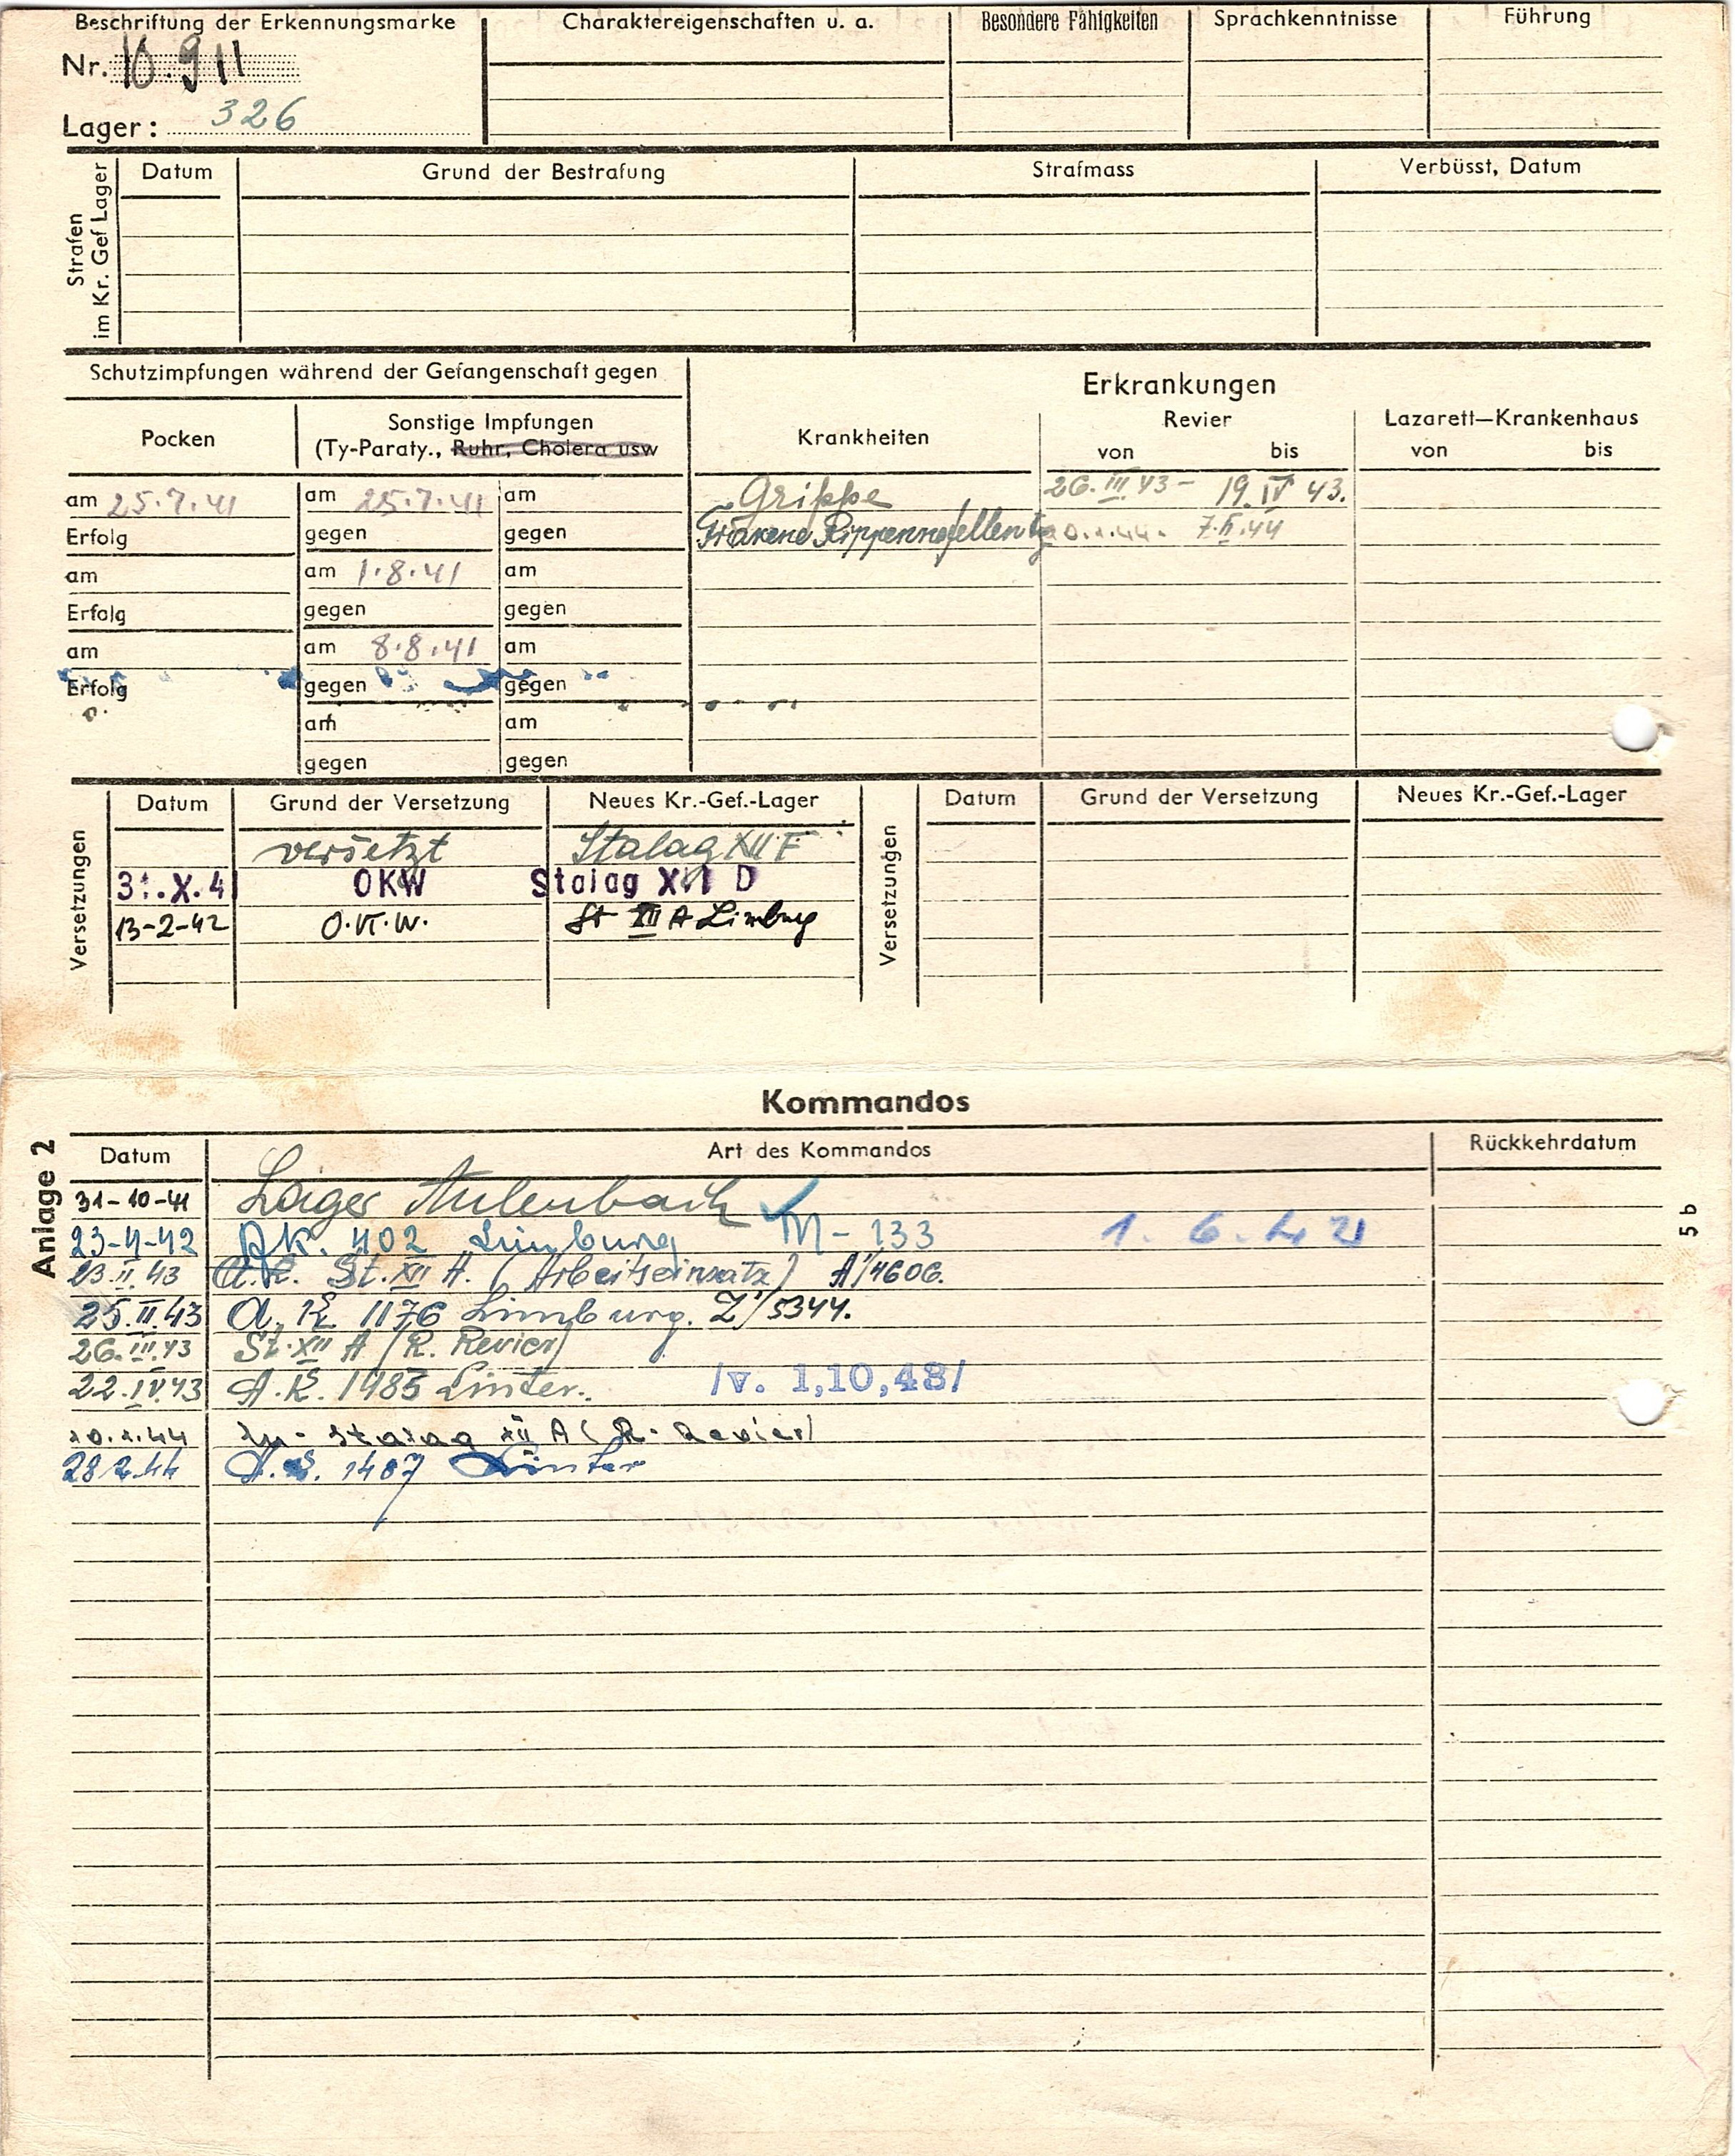 Beschriftung der Erkennungsmarke
Nr. 10.911
Lager: 326
Charaktereigenschaften u. a.
Besondere Fähigkeiten
Sprachkenntnisse
Führung
Strafen
im Kr. Gef Lager
Datum
Grund der Bestrafung
Strafmass
Verbüsst, Datum
Schutzimpfungen während der Gefangenschaft gegen
Pocken
Sonstige Impfungen
(Ty-Paraty., Ruhr, Cholera usw
am 25.7.41
am 25.7.41
am
Erfolg
gegen
gegen
am
am 1.8.41
am
Erfolg
gegen
gegen
am
am 8.8.41
am
Erfolg
gegen
gegen
am
am
gegen
gegen
Erkrankungen
Krankheiten
Revier
von bis
Lazarett—Krankenhaus
von bis
Grippe 26.III.43 - 19.IV 43.
7.II.44
Versetzungen
Datum
Grund der Versetzung
Neues Kr.-Gef.-Lager
versetzt Stalag XII F
31.X.41 OKW Stalag D
13-2-42 O.K.W. St XII A Limburg
Versetzungen
Datum
Grund der Versetzung
Neues Kr.-Gef.-Lager
Kommandos
Anlage 2
5b
Datum
Art des Kommandos
Rückkehrdatum
31-10-41 Lager
23-4-42 AK. 402 Limburg M-133 1.6.42
23.II.43 A.K. St.XII A. (Arbeitseinsatz) A/4606.
25.II.43 A.K. 1176 Limburg. Z/5344.
26.III.43 St.XII A (R. Revier)
22.IV.43 A.K. 1485 Linter. /v. 1,10,43/
Stalag XII A (R. Revier)
28.2.44 A.K. 1487 Linter